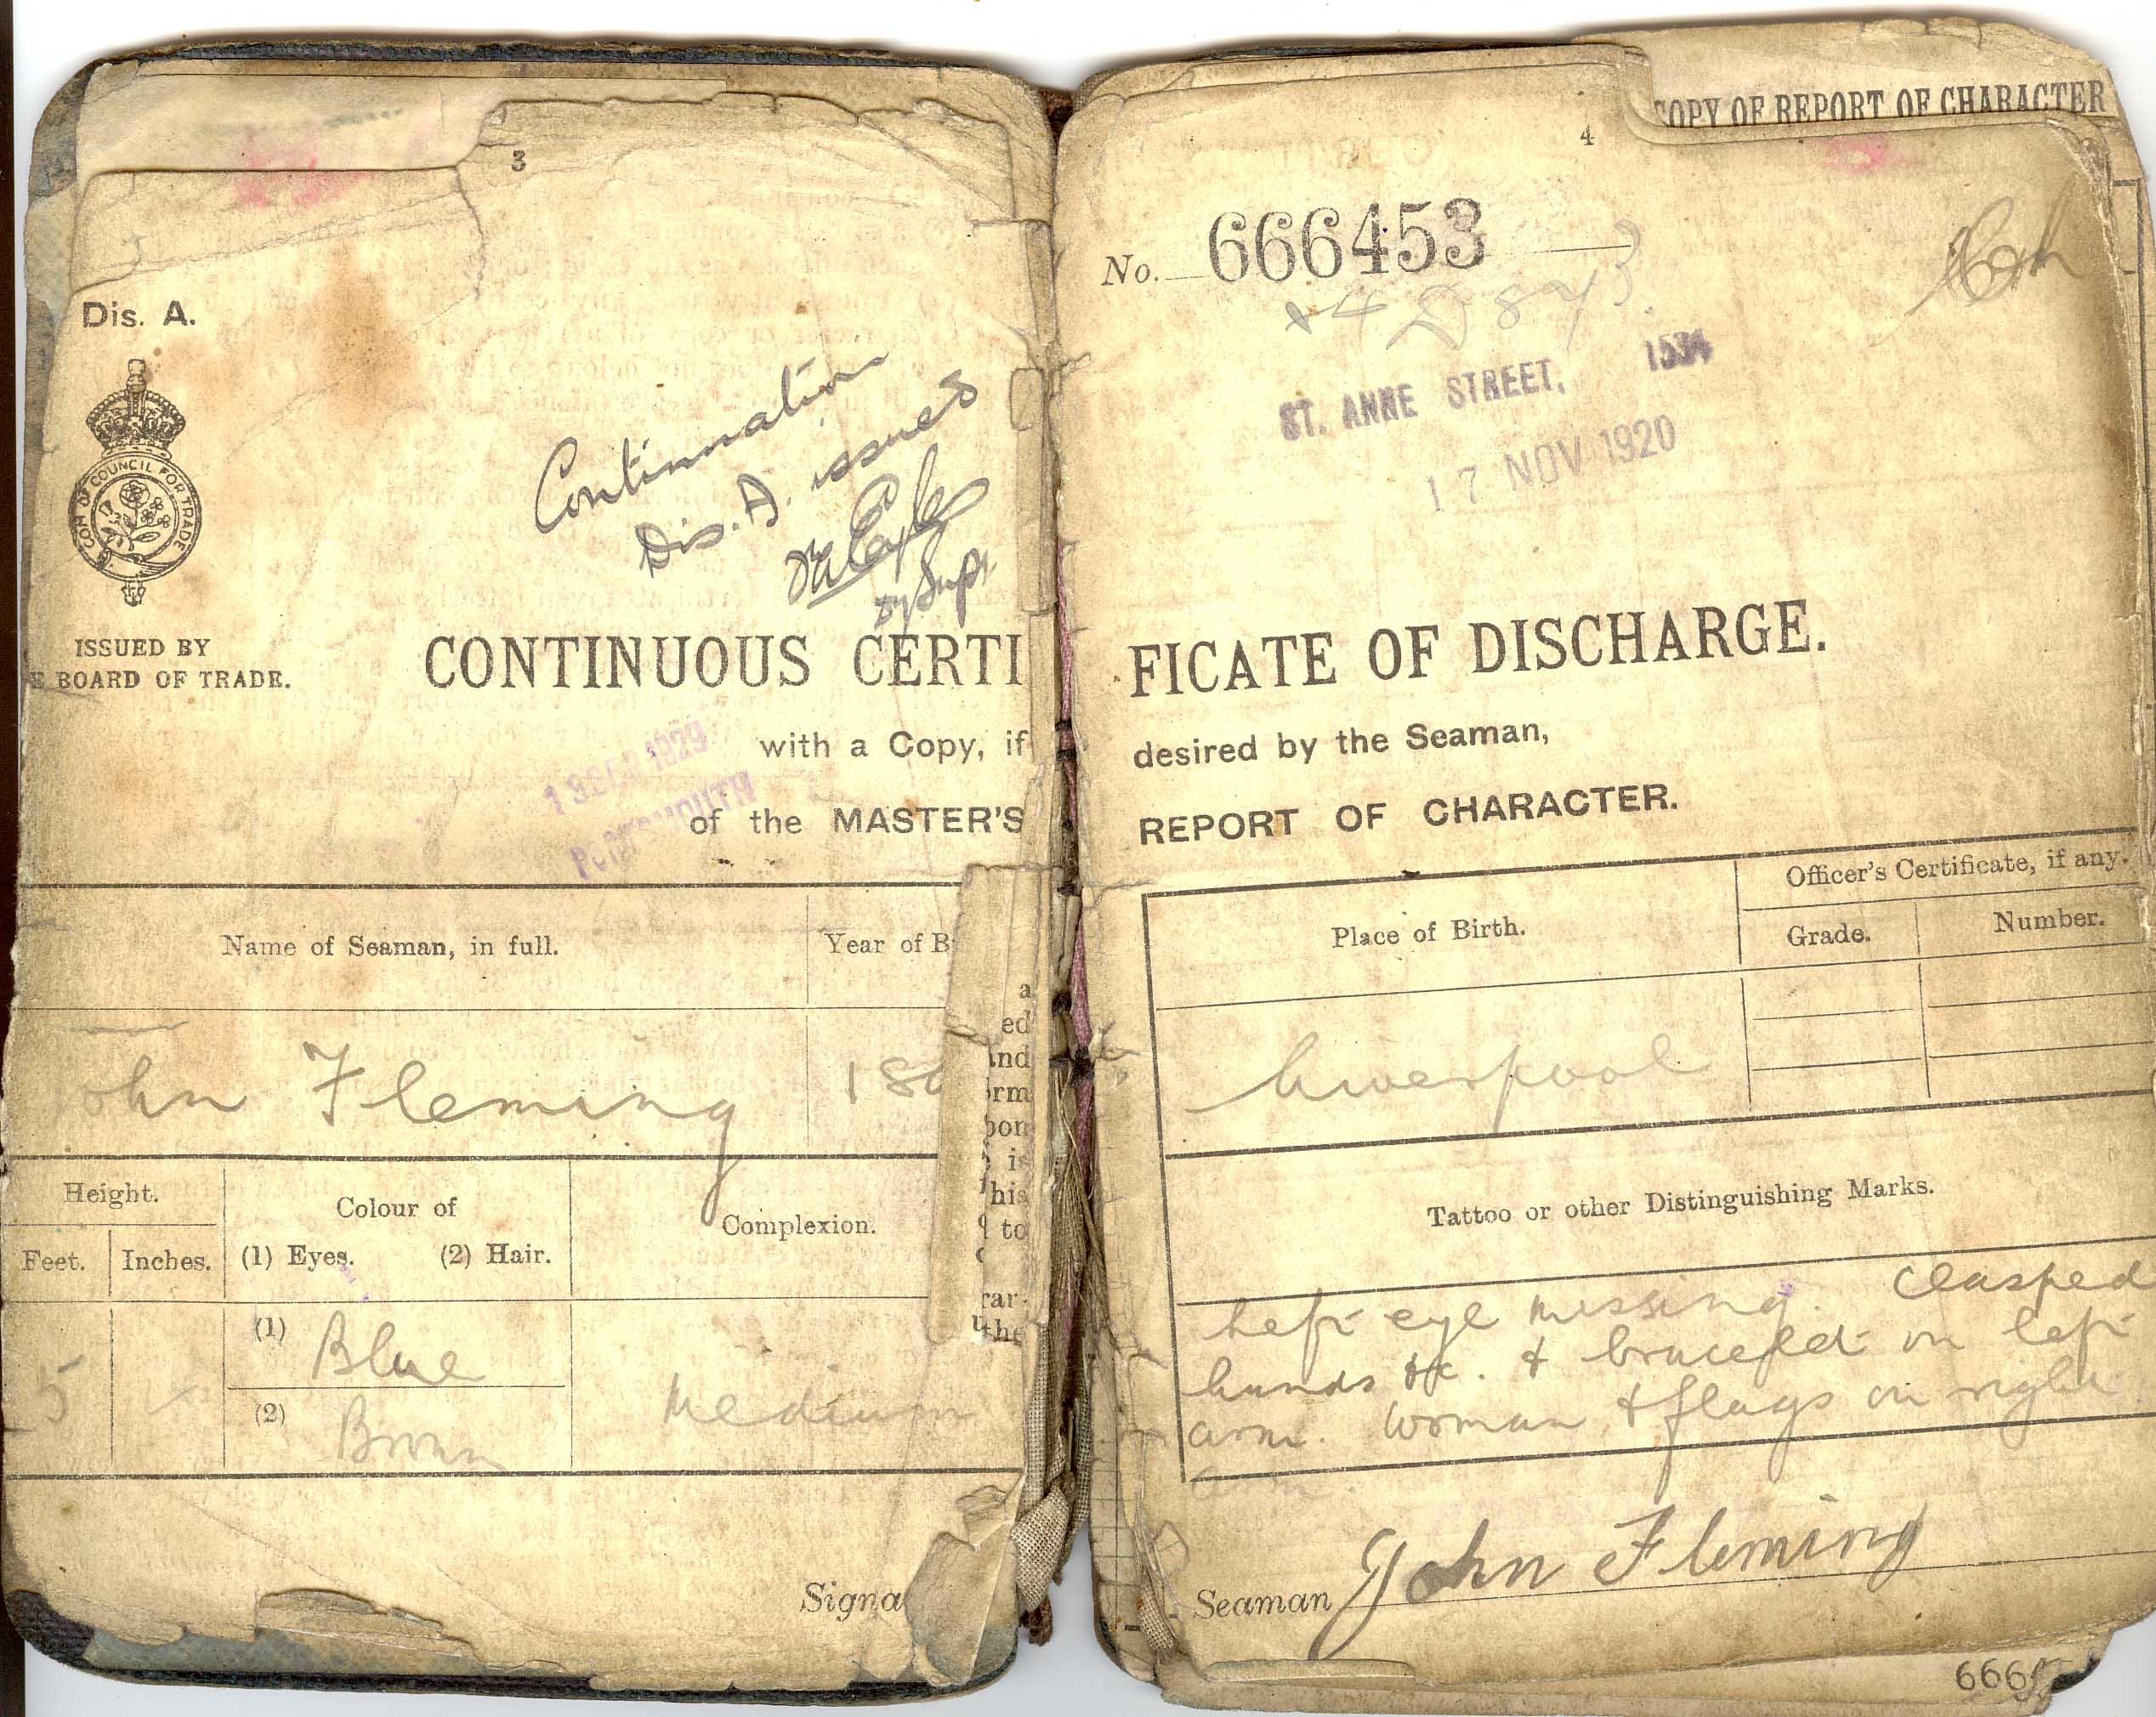 3
Dis. A.
COM OF COUNCIL FOR TRADE
Continuation
Dis. A. issued
ISSUED BY
E BOARD OF TRADE.
CONTINUOUS CERTI
with a Copy, if
of the MASTER'S
13 SEP 1929
PORTSMOUTH
Name of Seaman, in full.
Year of B
ohn Fleming
186
Height.
Feet.
Inches.
Colour of
(1) Eyes. (2) Hair.
Complexion.
5
(1) Blue
(2) Brown
Medium
Signa
a
ed
and
orm
pon
is
his
to
rar
the
COPY OF REPORT OF CHARACTER
4
No. 666453
ST. ANNE STREET, 1534
17 NOV 1920
FICATE OF DISCHARGE.
desired by the Seaman,
REPORT OF CHARACTER.
Place of Birth.
Officer's Certificate, if any.
Grade.
Number.
Liverpool
Tattoo or other Distinguishing Marks.
Left eye missing. Clasped
hands &c. & bracelet on left
arm. Woman & flags on right
arm.
Seaman John Fleming
666